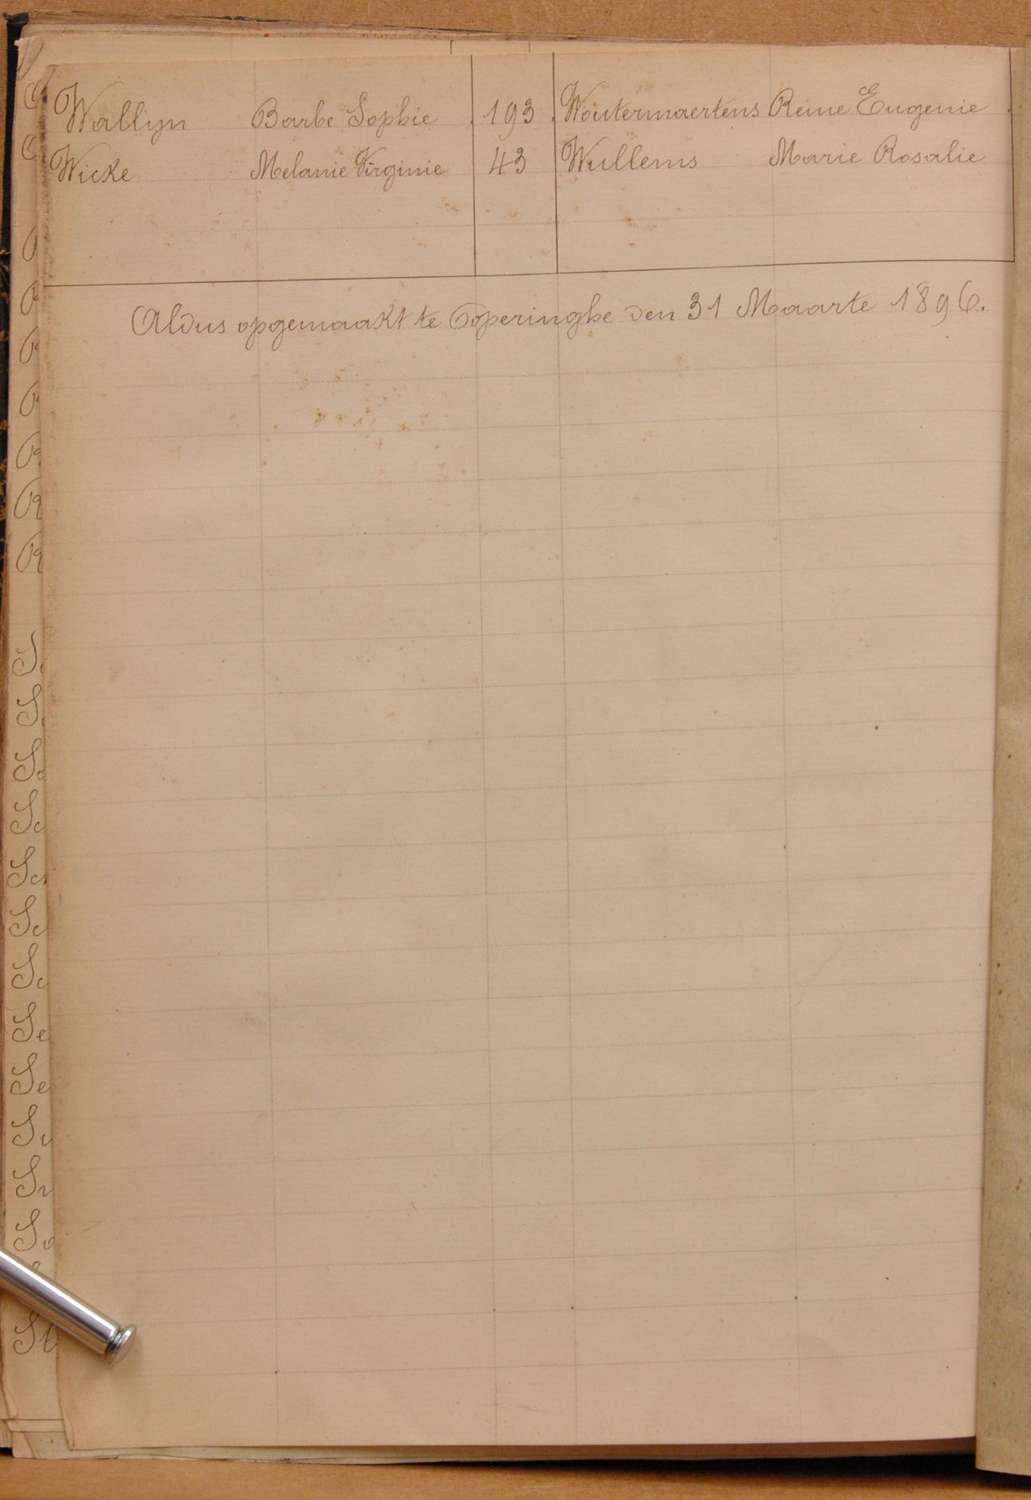 Wallyn Barbe Sophie 193 Woutermaertens Reine Eugenie
Wicke Melanie Virginie 43 Wullems Marie Rosalie
Aldus opgemaakt te Poperinghe den 31 Maarte 1896.